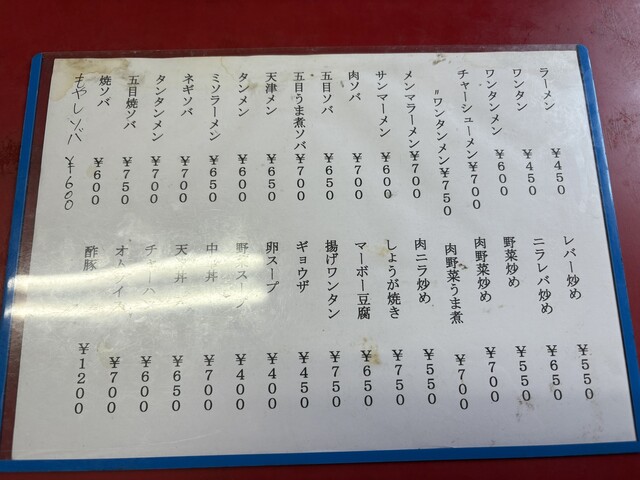 ラーメン ¥450
ワンタン ¥450
ワンタンメン ¥600
チャーシューメン ¥700
〃ワンタンメン ¥750
メンマラーメン ¥700
サンマーメン ¥600
肉ソバ ¥700
五目ソバ ¥650
五目うま煮ソバ ¥700
天津メン ¥650
タンメン ¥600
ミソラーメン ¥650
ネギソバ ¥700
タンタンメン ¥700
五目焼ソバ ¥750
焼ソバ ¥600
もやしソバ ¥600
レバー炒め ¥550
ニラレバ炒め ¥650
野菜炒め ¥550
肉野菜炒め ¥700
肉野菜うま煮 ¥700
肉ニラ炒め ¥550
しょうが焼き ¥750
マーボー豆腐 ¥650
揚げワンタン ¥750
ギョウザ ¥450
卵スープ ¥400
野菜スープ ¥400
中華丼 ¥700
天津丼 ¥650
チャーハン ¥600
オムライス ¥700
酢豚 ¥1200